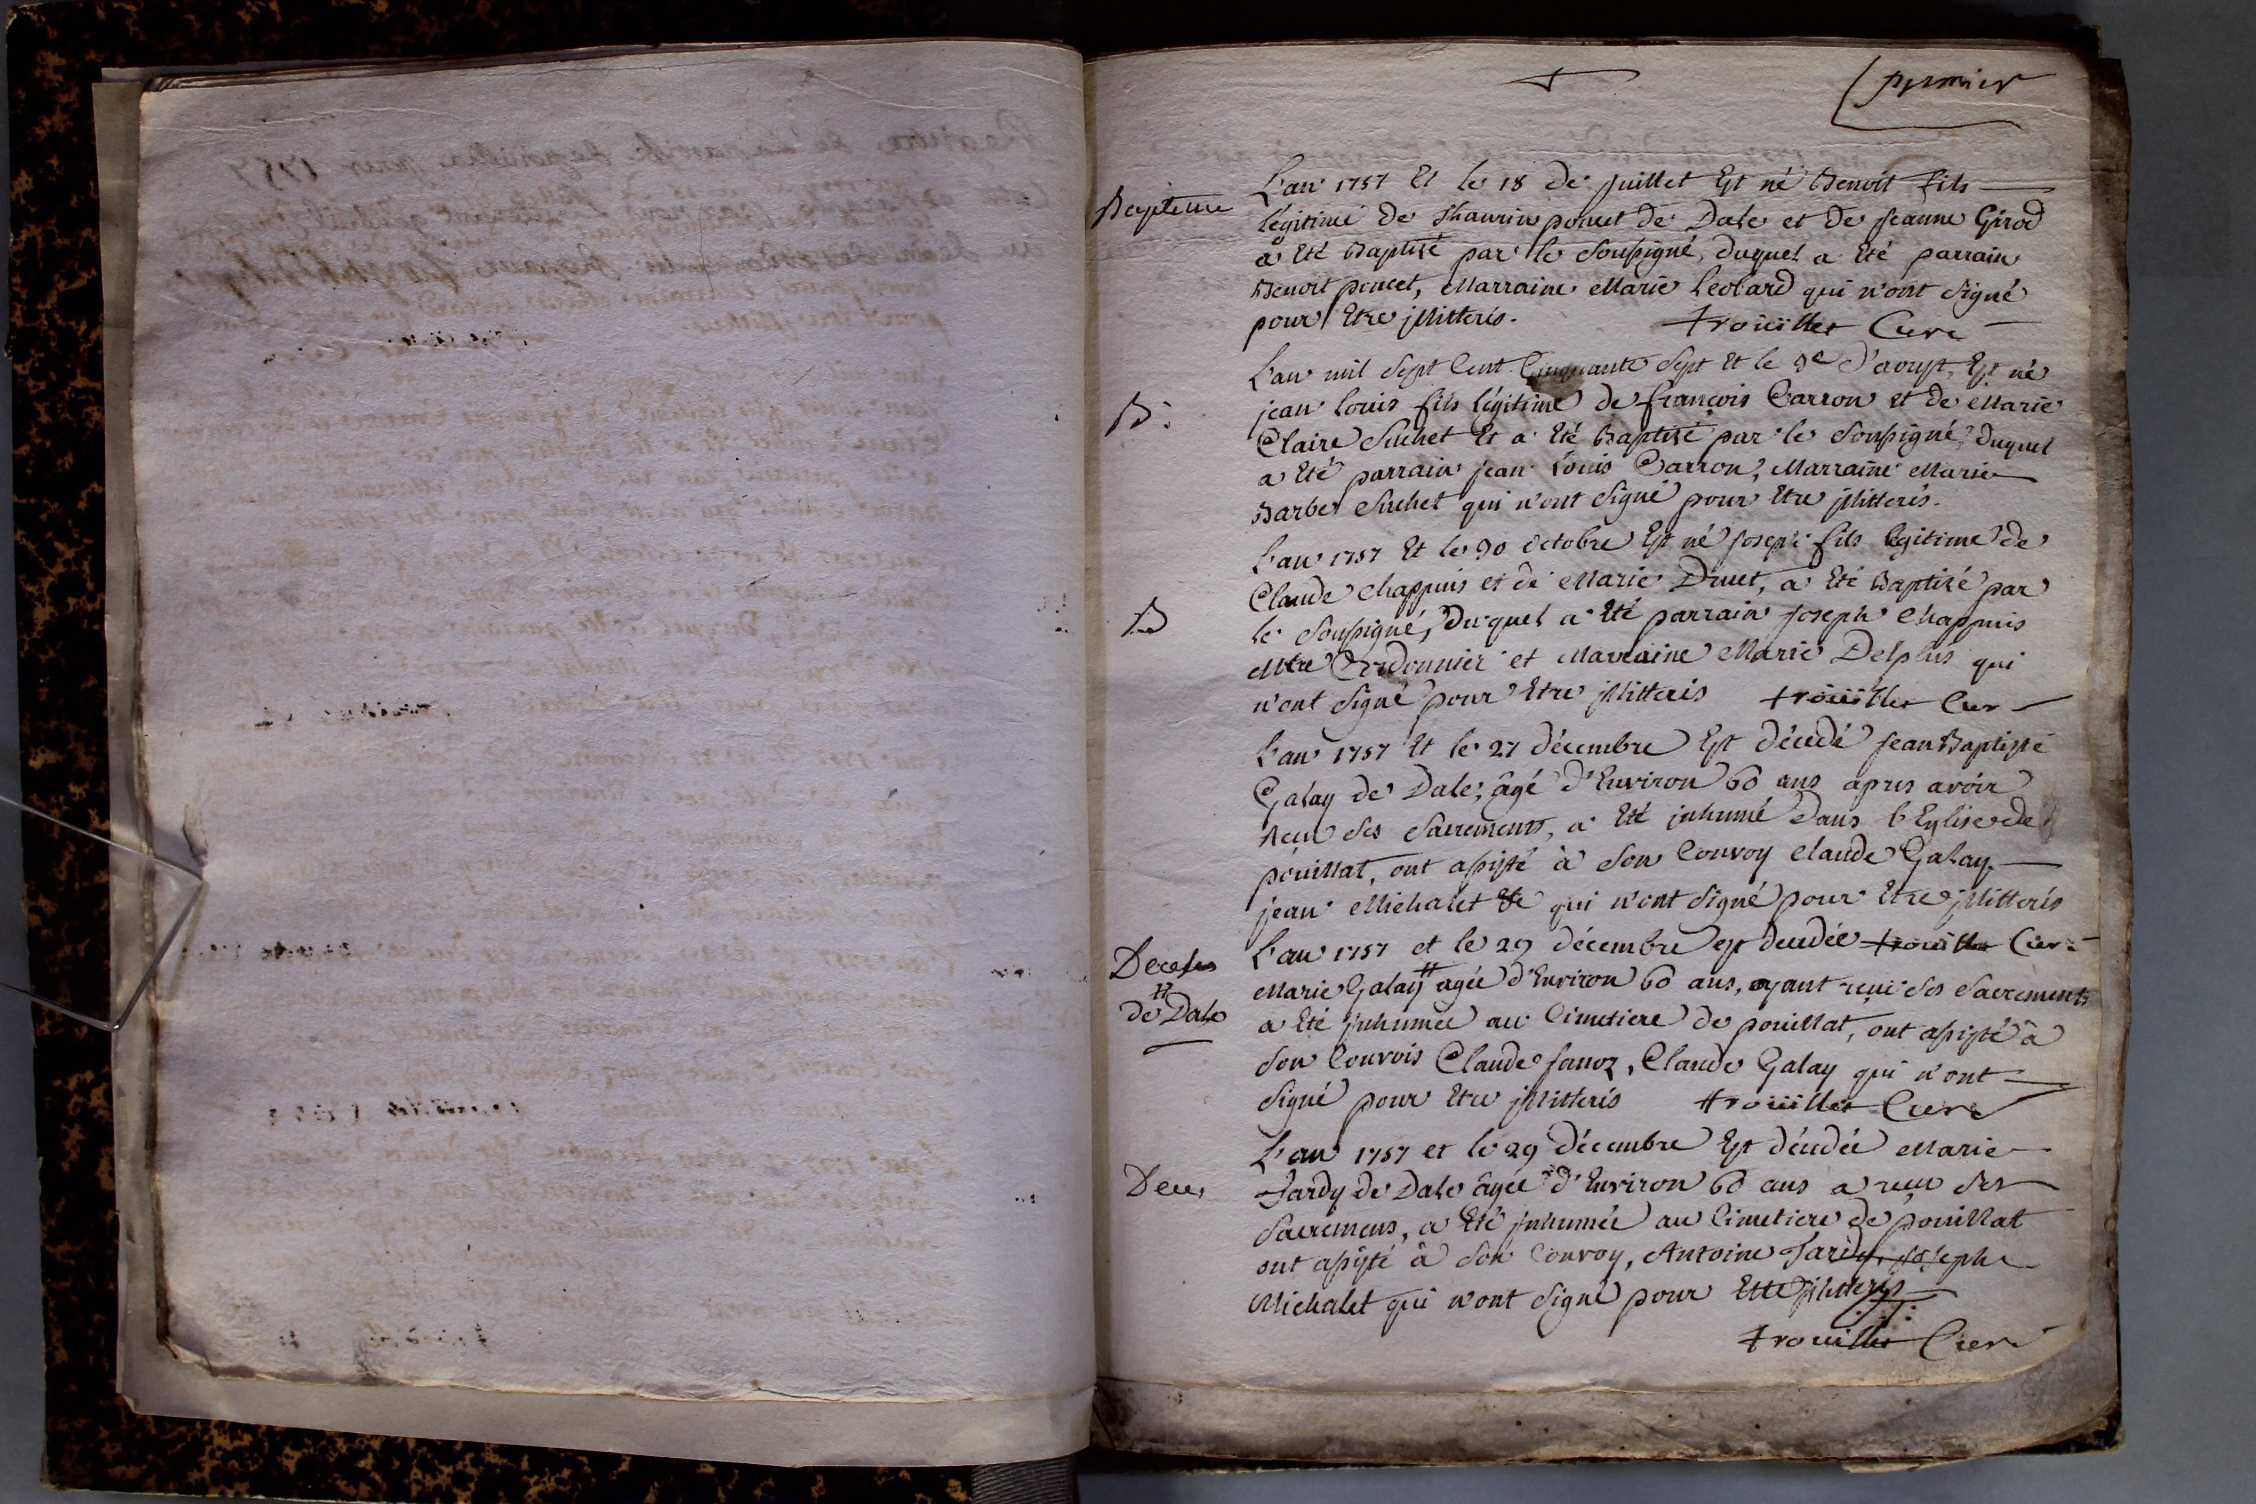 premier
Bapteme
L'an 1757 Et le 18 de juillet Est né Benoit fils
légitime de Thaurin poncet de Dale et de jeanne Girod
a Eté Baptisé par le soussigné, duquel a Eté parrain
Benoit poncet, Marraine Marie Leolard qui n'ont signé
pour Etre jllitterés. trouillet Curé
L'an mil sept Cent Cinquante sept Et le 9e d'aoust, Est né
B:
jean louis fils légitime de françois Carron et de Marie
Claire Suchet Et a Eté Baptisé par le soussigné, duquel
a Eté parrain jean louis Carron, Marraine Marie
Barbe Suchet qui n'ont signé pour Etre jllitterés.
L'an 1757 Et le 30 octobre Est né joseph fils légitime de
Claude Chappuis et de Marie Druet, a Eté Baptisé par
B
le soussigné, duquel a Eté parrain joseph Chappuis
Mtre Cordonnier et Marraine Marie Delphis qui
n'ont signé pour Etre jllitterés trouillet Cur
L'an 1757 Et le 27 décembre Est décédé jean Baptiste
Galay de Dale, âgé d'Environ 60 ans apres avoir
Recu ses sacremens, a Eté jnhumé dans l'Eglise de
pouillat, ont assisté à son Convoy Claude Galay
jean Michalet &c qui n'ont signé pour Etre jllitterés
L'an 1757 et le 29 décembre est decedée trouillet Curé
Deces
Marie Galay # agée d'Environ 60 ans, ayant reçu ses sacrements
# de Dale
a Eté jnhumée au Cimetiere de pouillat, ont assisté à
son Convois Claude janoz, Claude Galay qui n'ont
signé pour Etre jllitterés trouillet Curé
L'an 1757 et le 29 décembre Est décédée Marie
Deces
Tardy de Dale âgée d'Environ 60 ans a recu ses
sacremens, a Eté jnhumée au Cimetiere de pouillat
ont assisté à son Convoy, Antoine Tardy, joseph
Michalet qui n'ont signé pour Etre jllitterés
trouillet Curé